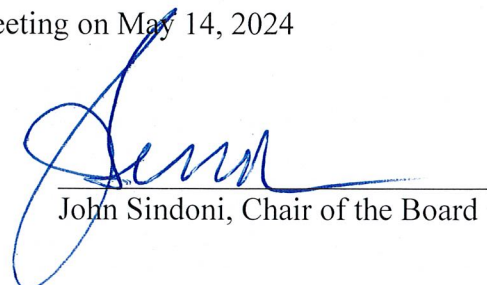 eeting on May 14, 2024
John Sindoni, Chair of the Board